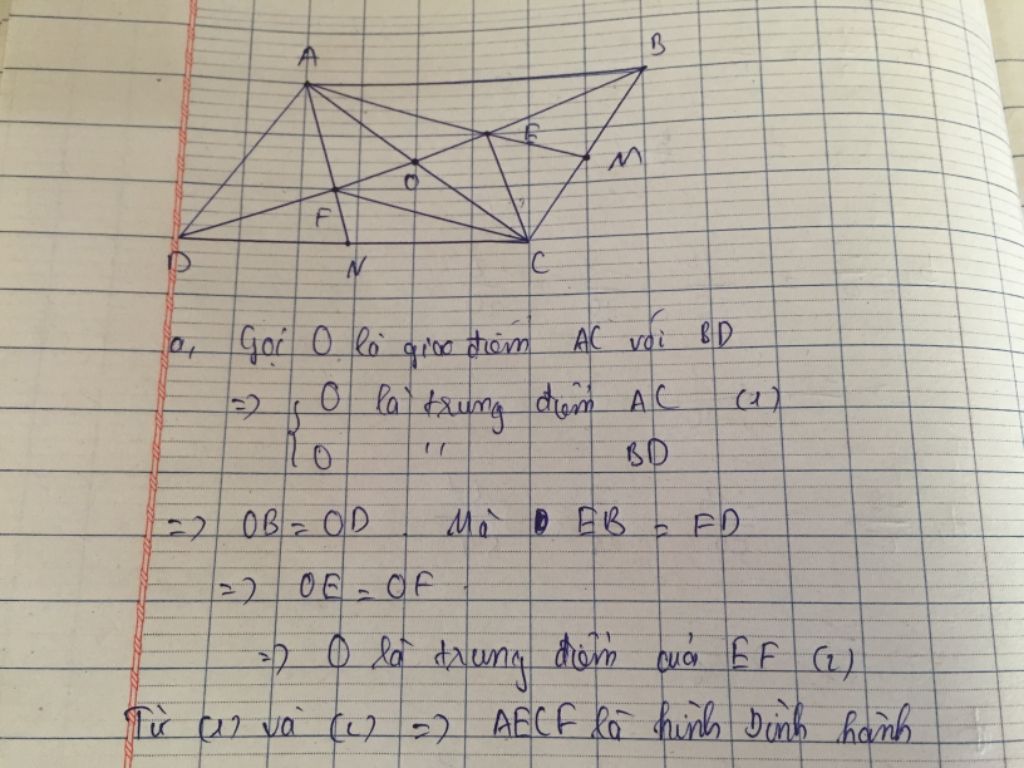 A
B
E
M
O
F
D
N
C
a, Gọi O là giao điểm AC với BD
=> { O là trung điểm AC (1)
O " BD
=> OB = OD. Mà EB = FD
=> OE = OF.
=> O là trung điểm của EF (2)
Từ (1) và (2) => AECF là hình bình hành